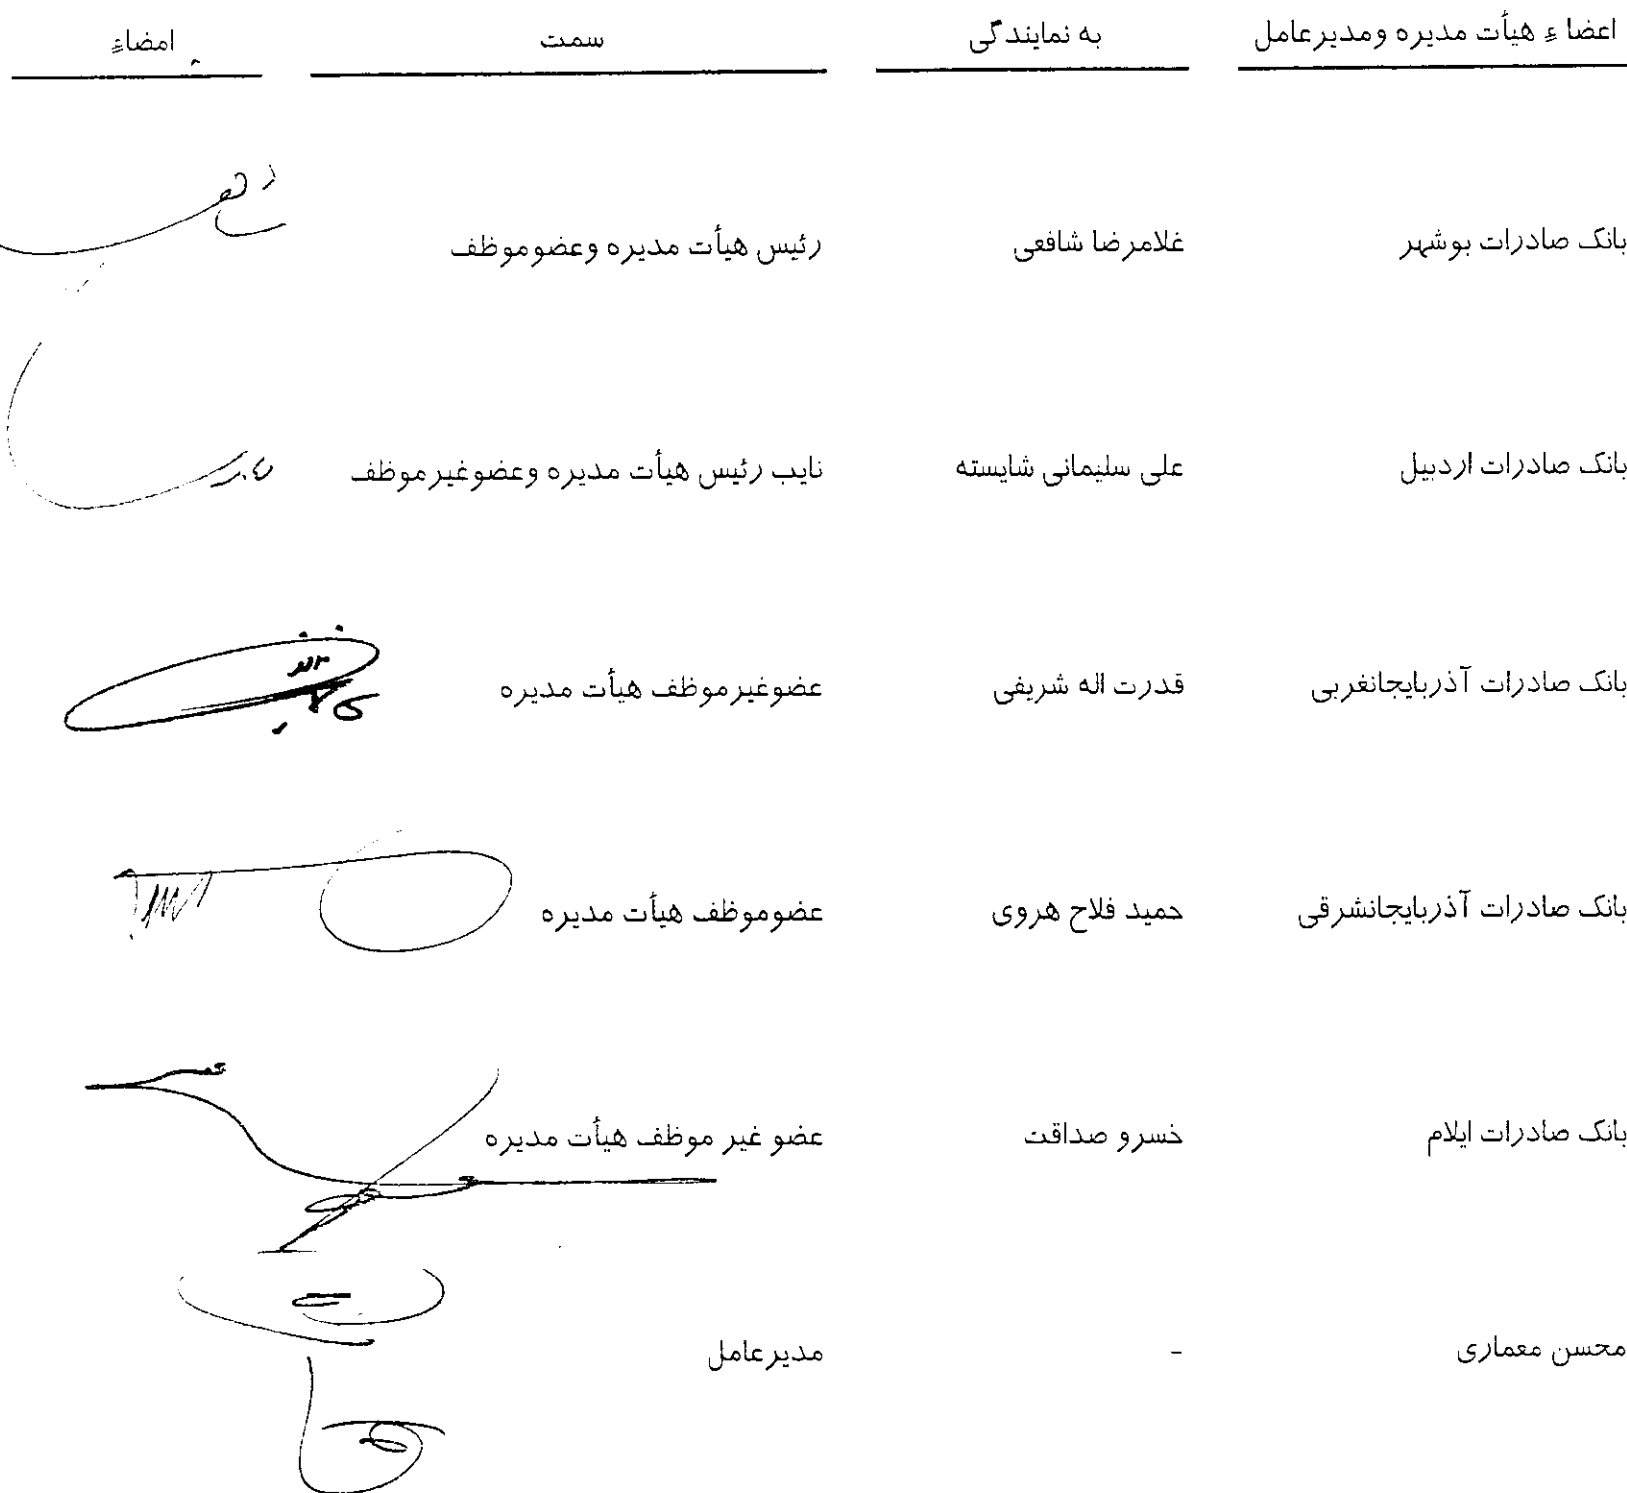 اعضاءِ هیأت مدیره ومدیرعامل به نمایندگی سمت امضاءِ
بانک صادرات بوشهر غلامرضا شافعی رئیس هیأت مدیره وعضوموظف
بانک صادرات اردبیل علی سلیمانی شایسته نایب رئیس هیأت مدیره وعضوغیرموظف
بانک صادرات آذربایجانغربی قدرت اله شریفی عضوغیرموظف هیأت مدیره
بانک صادرات آذربایجانشرقی حمید فلاح هروی عضوموظف هیأت مدیره
بانک صادرات ایلام خسرو صداقت عضو غیر موظف هیأت مدیره
محسن معماری - مدیرعامل